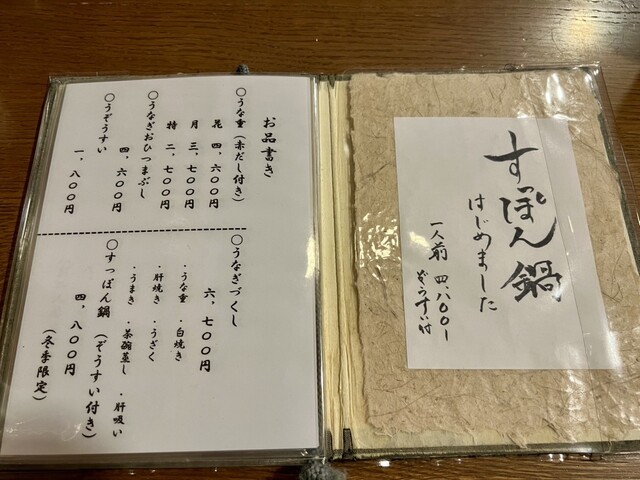 すっぽん鍋
はじめました
一人前 四、八〇〇ー
ぞうすい付
お品書き
〇うな重(赤だし付き)
花 四、六〇〇円
月 三、七〇〇円
特 二、七〇〇円
〇うなぎおひつまぶし
四、六〇〇円
〇うぞうすい
一、八〇〇円
〇うなぎづくし
六、七〇〇円
・うな重 ・白焼き
・肝焼き ・うざく
・うまき ・茶碗蒸し ・肝吸い
〇すっぽん鍋(ぞうすい付き)
四、八〇〇円
(冬季限定)